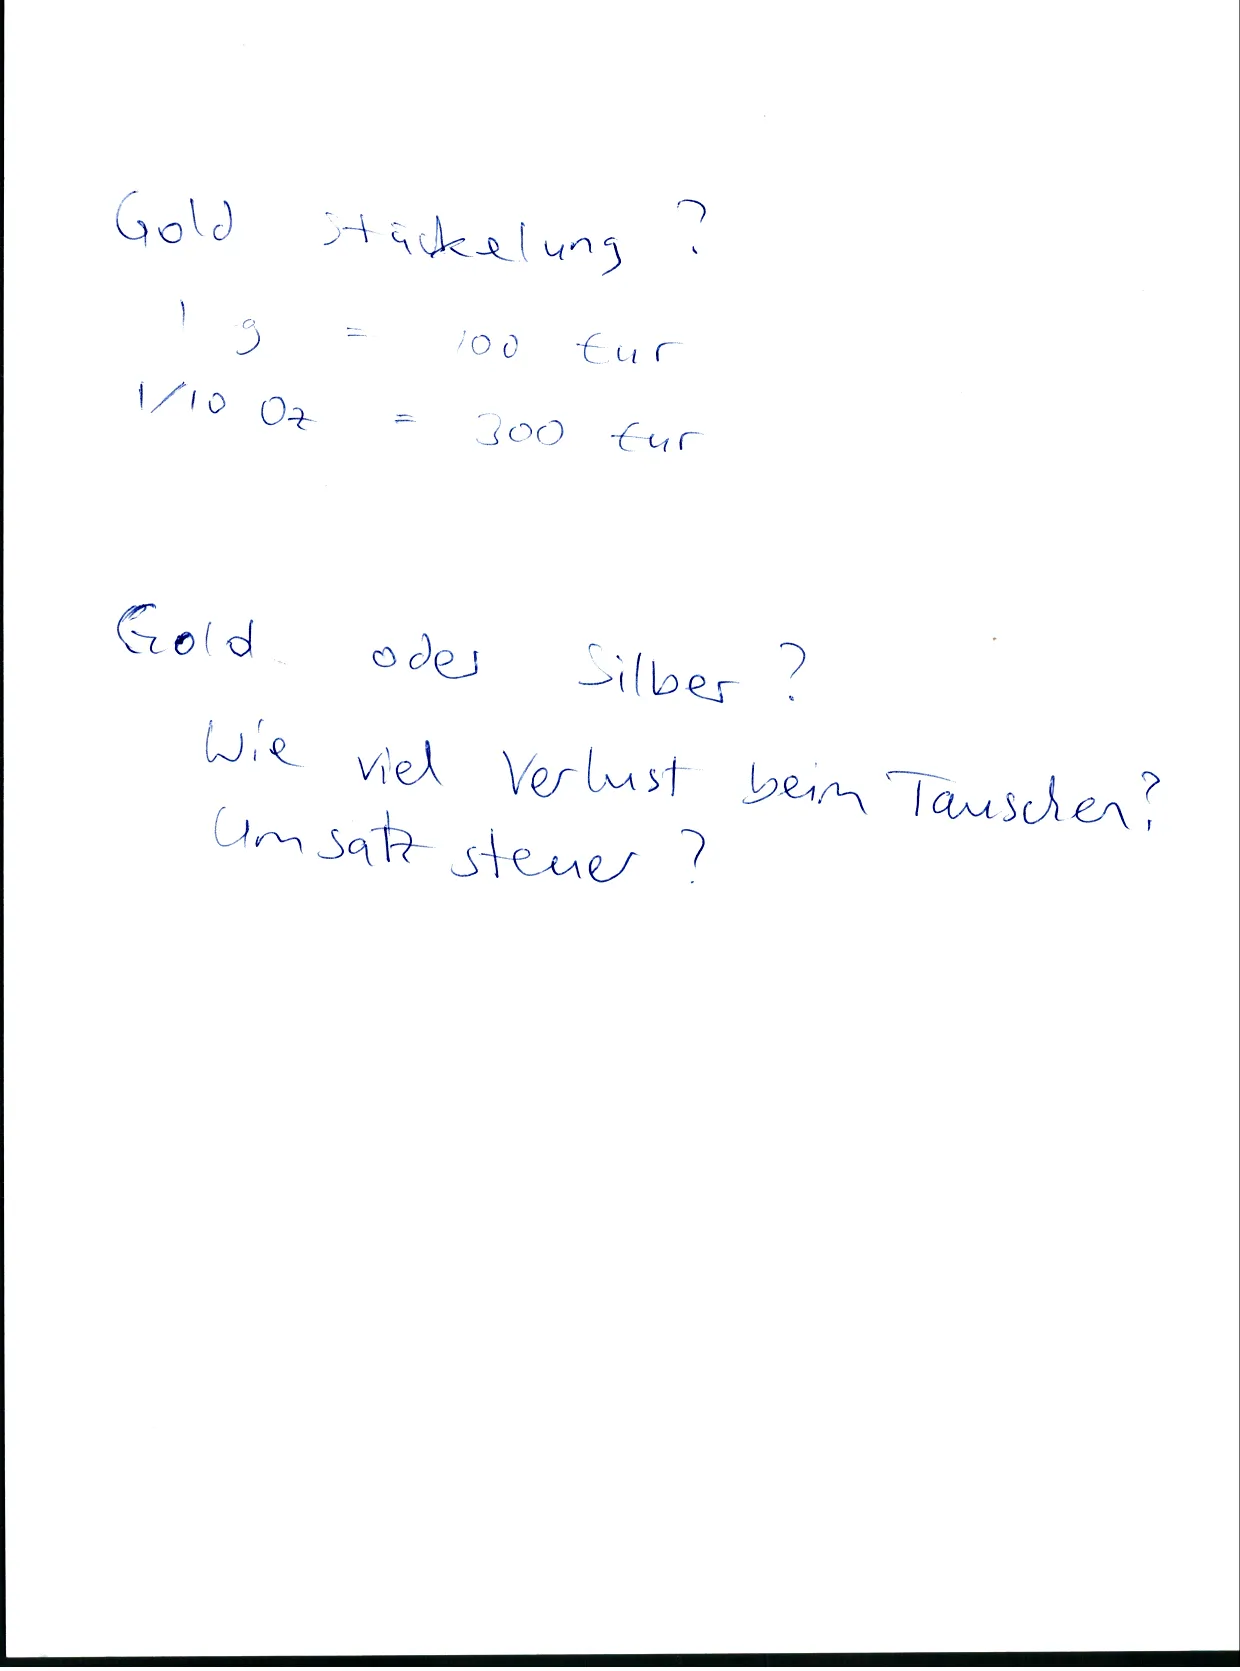 Gold stückelung ?
1 g = 100 Eur
1/10 Oz = 300 Eur
Gold oder Silber ?
Wie viel Verlust beim Tauschen?
Umsatzsteuer ?